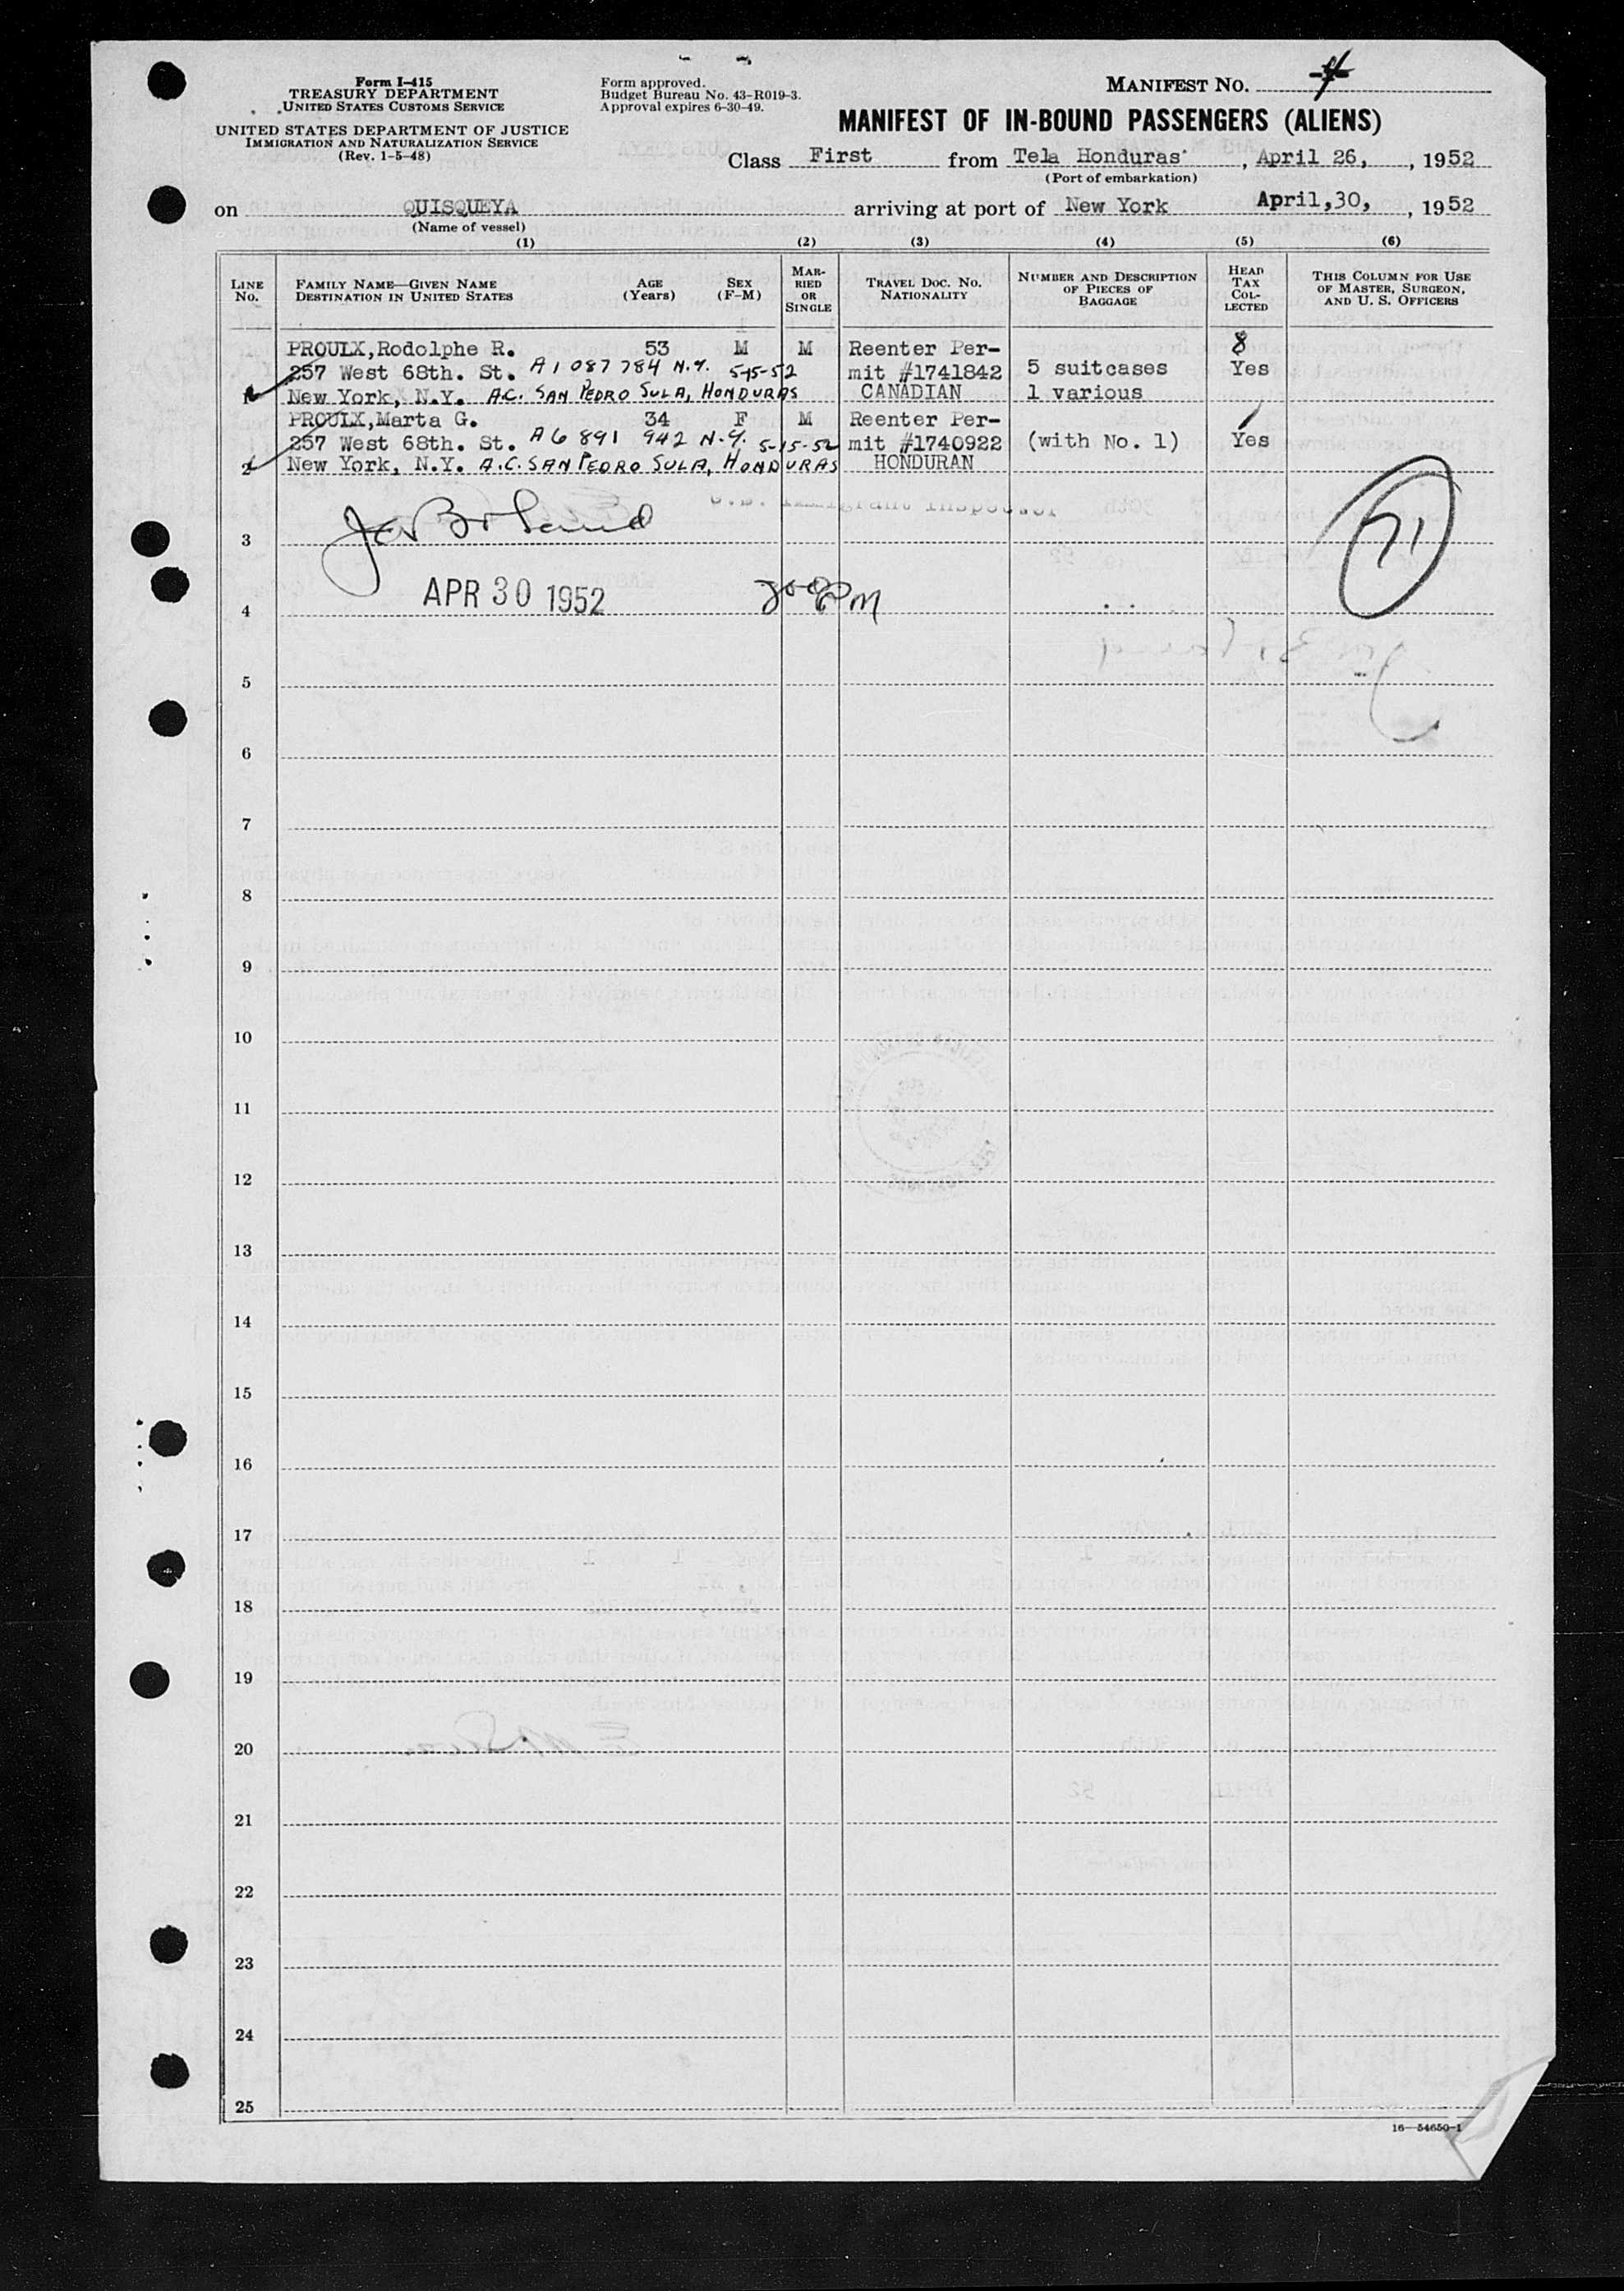 Form I-415
TREASURY DEPARTMENT
UNITED STATES CUSTOMS SERVICE
UNITED STATES DEPARTMENT OF JUSTICE
IMMIGRATION AND NATURALIZATION SERVICE
(Rev. 1-5-48)
Form approved.
Budget Bureau No. 43-R019-3.
Approval expires 6-30-49.
MANIFEST NO.
MANIFEST OF IN-BOUND PASSENGERS (ALIENS)
Class First from Tela Honduras, April 26, , 1952
(Port of embarkation)
on QUISQUEYA arriving at port of New York April,30, , 1952
(Name of vessel)
(1) (2) (3) (4) (5) (6)
LINE NO.
FAMILY NAME—GIVEN NAME
DESTINATION IN UNITED STATES
AGE (Years)
SEX (F-M)
MARRIED OR SINGLE
TRAVEL DOC. NO. NATIONALITY
NUMBER AND DESCRIPTION OF PIECES OF BAGGAGE
HEAD TAX COLLECTED
THIS COLUMN FOR USE OF MASTER, SURGEON, AND U. S. OFFICERS
PROULX,Rodolphe R. 53 M M Reenter Per- 8
257 West 68th. St. A1 087 784 N.Y. 5-15-52 mit #1741842 5 suitcases Yes
1 New York, N.Y. A.C. SAN PEDRO SULA, HONDURAS CANADIAN 1 various
PROULX,Marta G. 34 F M Reenter Per-
257 West 68th. St. A6 891 942 N.Y. 5-15-52 mit #1740922 (with No. 1) Yes
2 New York, N.Y. A.C. SAN PEDRO SULA, HONDURAS HONDURAN
71
3
APR 30 1952
4
5
6
7
8
9
10
11
12
13
14
15
16
17
18
19
20
21
22
23
24
25
16—54650-1